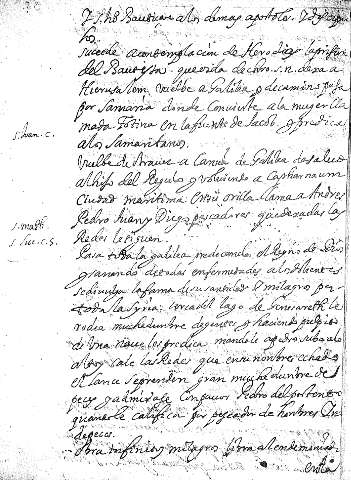 y S. Juº Bauticen a los demas apostoles. y discipu
los.
sucede a contemplacion de Herodias la prision
del Bauptista. que oida de chro. s. n. dexa a
Hierusalem, vuelbe a Galilea, y de camino passa
por Samaria donde convierte a la muger lla
mada Fotina en la fuente de Jacob, y predica
a los samaritanos.
s. Juan. c. 5.
vuelbe de Nuevo a Cana de Galilea da salud
al hijo del Regulo y volviendo a Capharnaum
Ciudad maritima en su orilla llama a Andres
Pedro Juan y Diego pescadores que dexadas las
Redes le siguen.
s. math.
s. Luc. c. 5.
Passa toda la galilea predicando, el Reyno de Dios
y sanando de todas enfermedades a los dolientes
se divulga la fama de su santidad y milagros por
toda la syria: cerca del lago de Genesareth le
rodea muchedumbre de gentes, y haciendo pulpito
de una naue les predica. mandole a pedro suba a lo
alto y cale las Redes que en su nombre echado
el lance se prenden gran muchedumbre de
peces y admirase con pavor Pedro del portento
y cariñoso le califica por pescador de hombres
de peces.
Obra infinitos milagros libra al endemoniado
en la